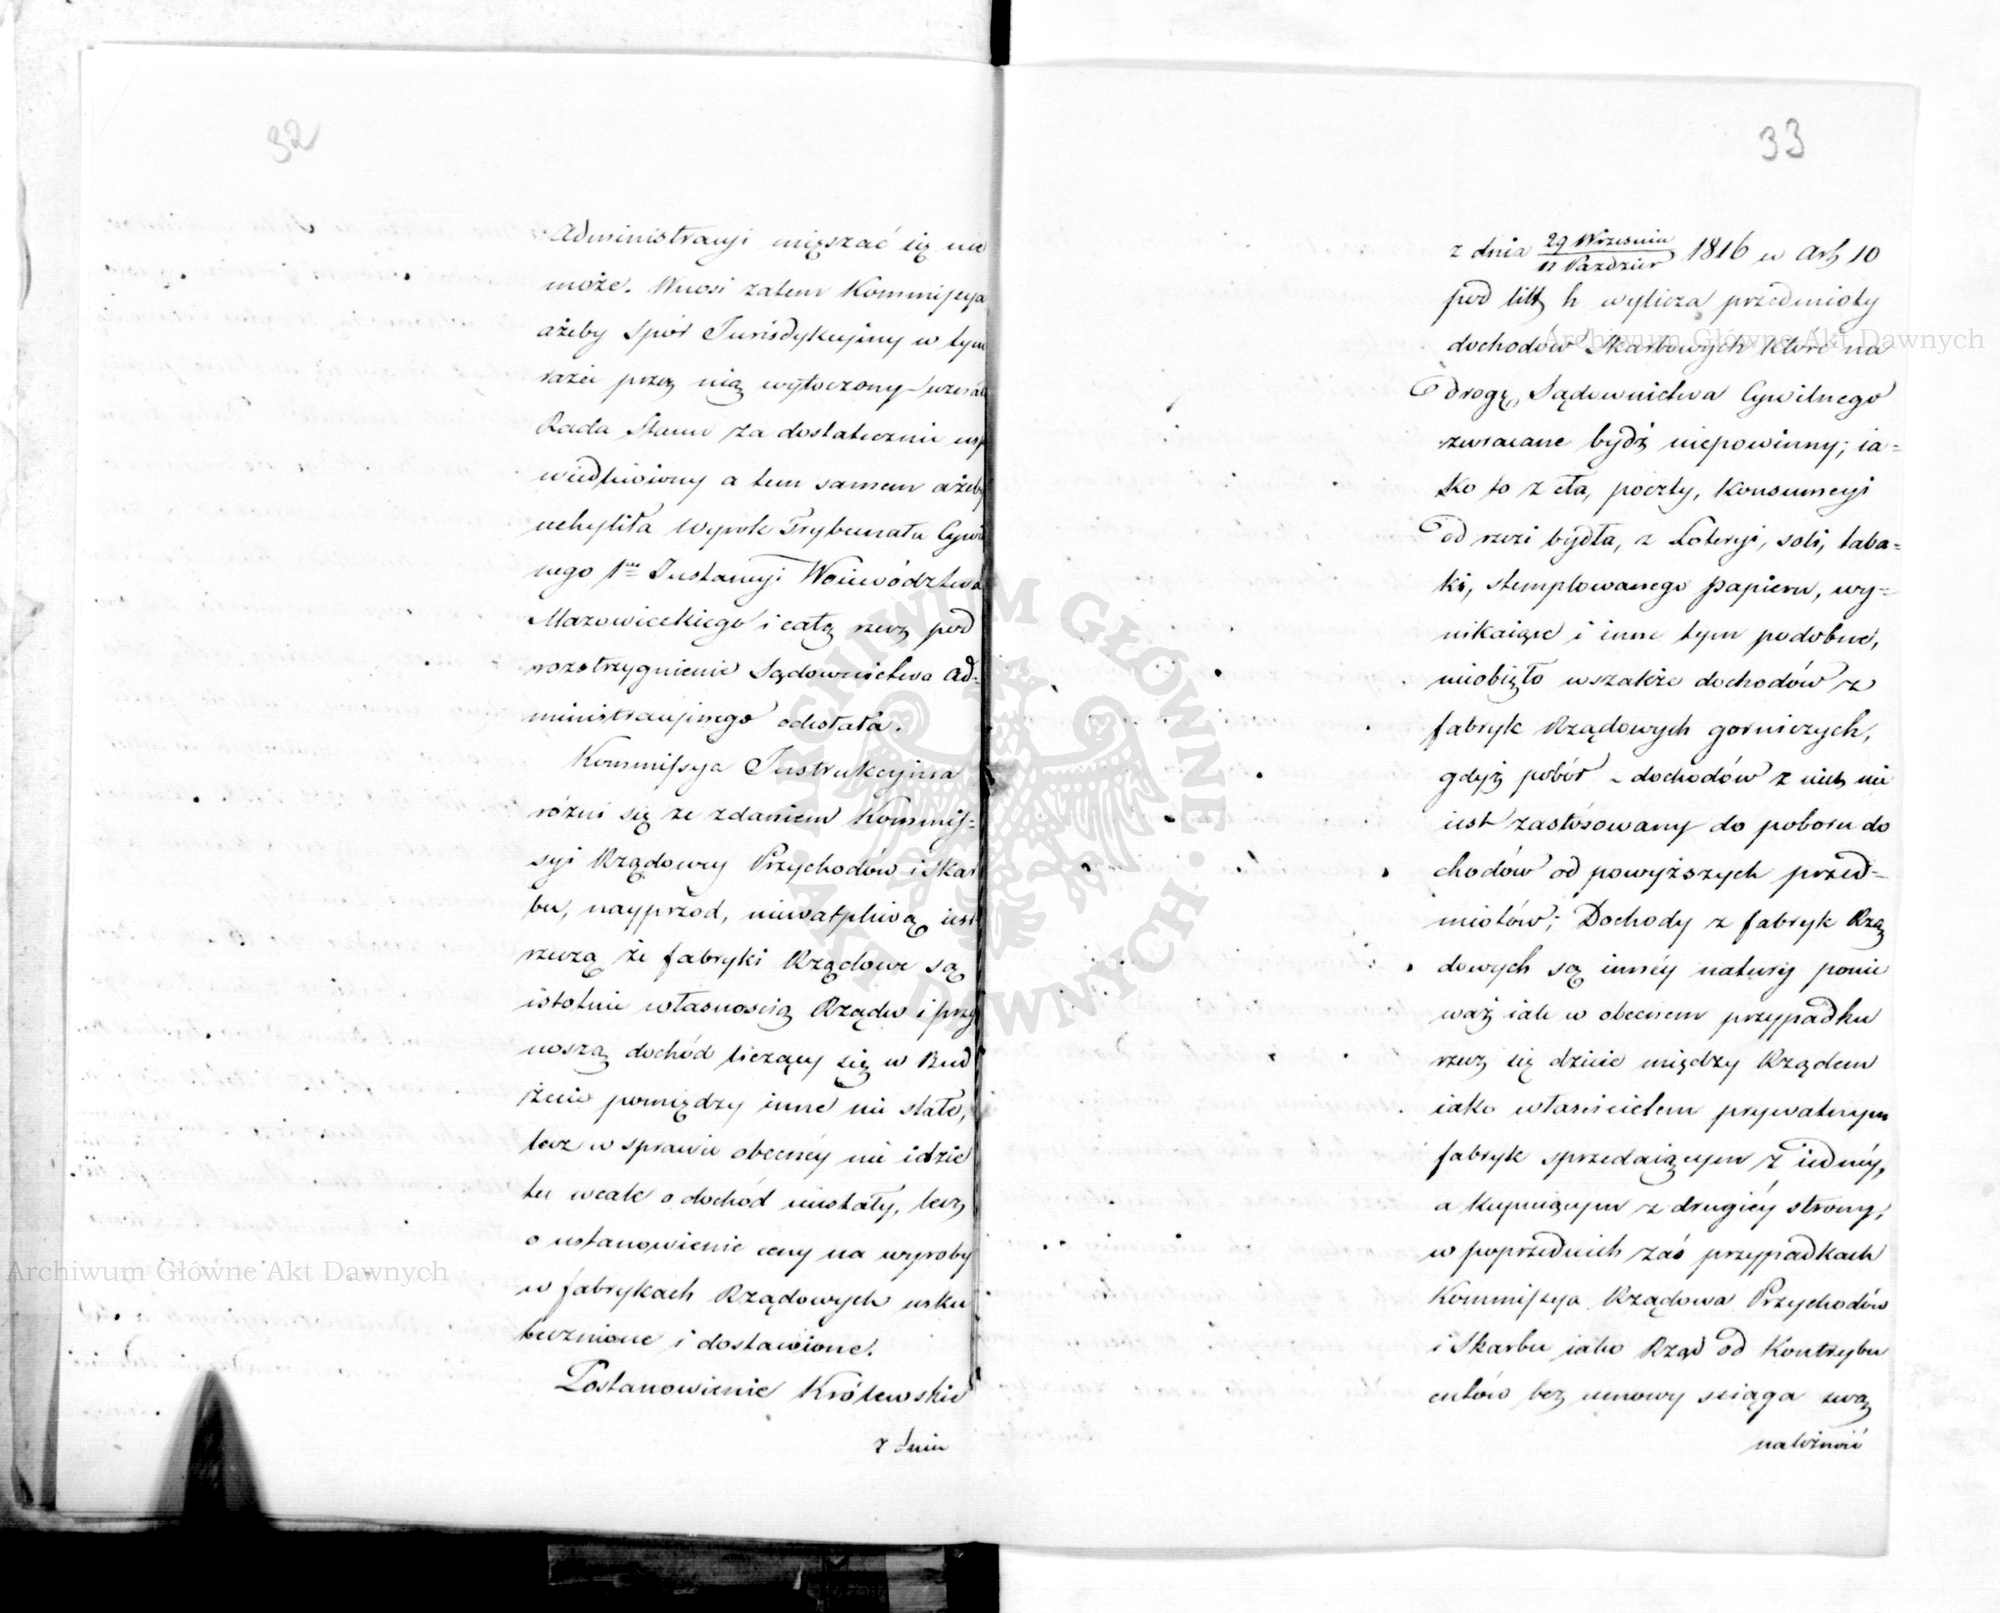 32
Administracyi mięszać się nie
może. Wnosi zatem Kommissya
ażeby Spór Jurisdykcyjny w tym
razie przez nią wytoczony uznała
Rada Stanu za dostatecznie uspra
wiedliwiony a tem samem ażeby
uchyliła Wyrok Trybunału Cywil
nego 1wszej Instancyi Woiewództwa
Mazowieckiego i całą rzecz pod
rozstrzygnienie Sądownictwa Ad=
ministracyjnego odesłała.
Kommissya Instrukcyjna
różni się ze zdaniem Kommis=
syi Rządowey Przychodów i Skar
bu, nayprzod, niewątpliwą iest
rzeczą że fabryki Rządowe są
istotnie własnością Rządu i przy
noszą dochód liczący się w Bud
żecie pomiędzy inne nie stałe,
lecz w sprawie obecnéy nie idzie
tu wcale o dochód niestały, lecz
o ustanowienie ceny na wyroby
w fabrykach Rządowych usku
tecznione i dostawione.
Postanowienie Królewskie
z dnia
33
z dnia 29 Września / 11 Paździer 1816 w Art 10
pod litt h wylicza przedmioty
dochodów Skarbowych które na
drogę Sądownictwa Cywilnego
zwracane bydź niepowinny; ia=
ko to z cła, poczty, Konsumcyi
od rzezi bydła, z Loteryi, soli, taba=
ki, stemplowanego papieru, wy=
nikaiące i inne tym podobne,
nieobięto wszakże dochodów z
fabryk Rządowych gorniczych,
gdyż pobór dochodów z nich nie
iest zastósowany do poboru do
chodów od powyższych przed=
miotów; Dochody z fabryk Rzą
dowych są innéy natury ponie
waż iak w obecnem przypadku
rzecz się dzieie między Rządem
iako właścicielem prywatnym
fabryk sprzedaiącym z iednéy,
a kupuiącym z drugiéy strony;
w poprzednich zaś przypadkach
Kommissya Rządowa Przychodów
i Skarbu iako Rząd od Kontrybu
entów bez umowy sciąga swą
należność
Archiwum Główne Akt Dawnych
Archiwum Główne Akt Dawnych
ARCHIWUM GŁÓWNE • AKT DAWNYCH •